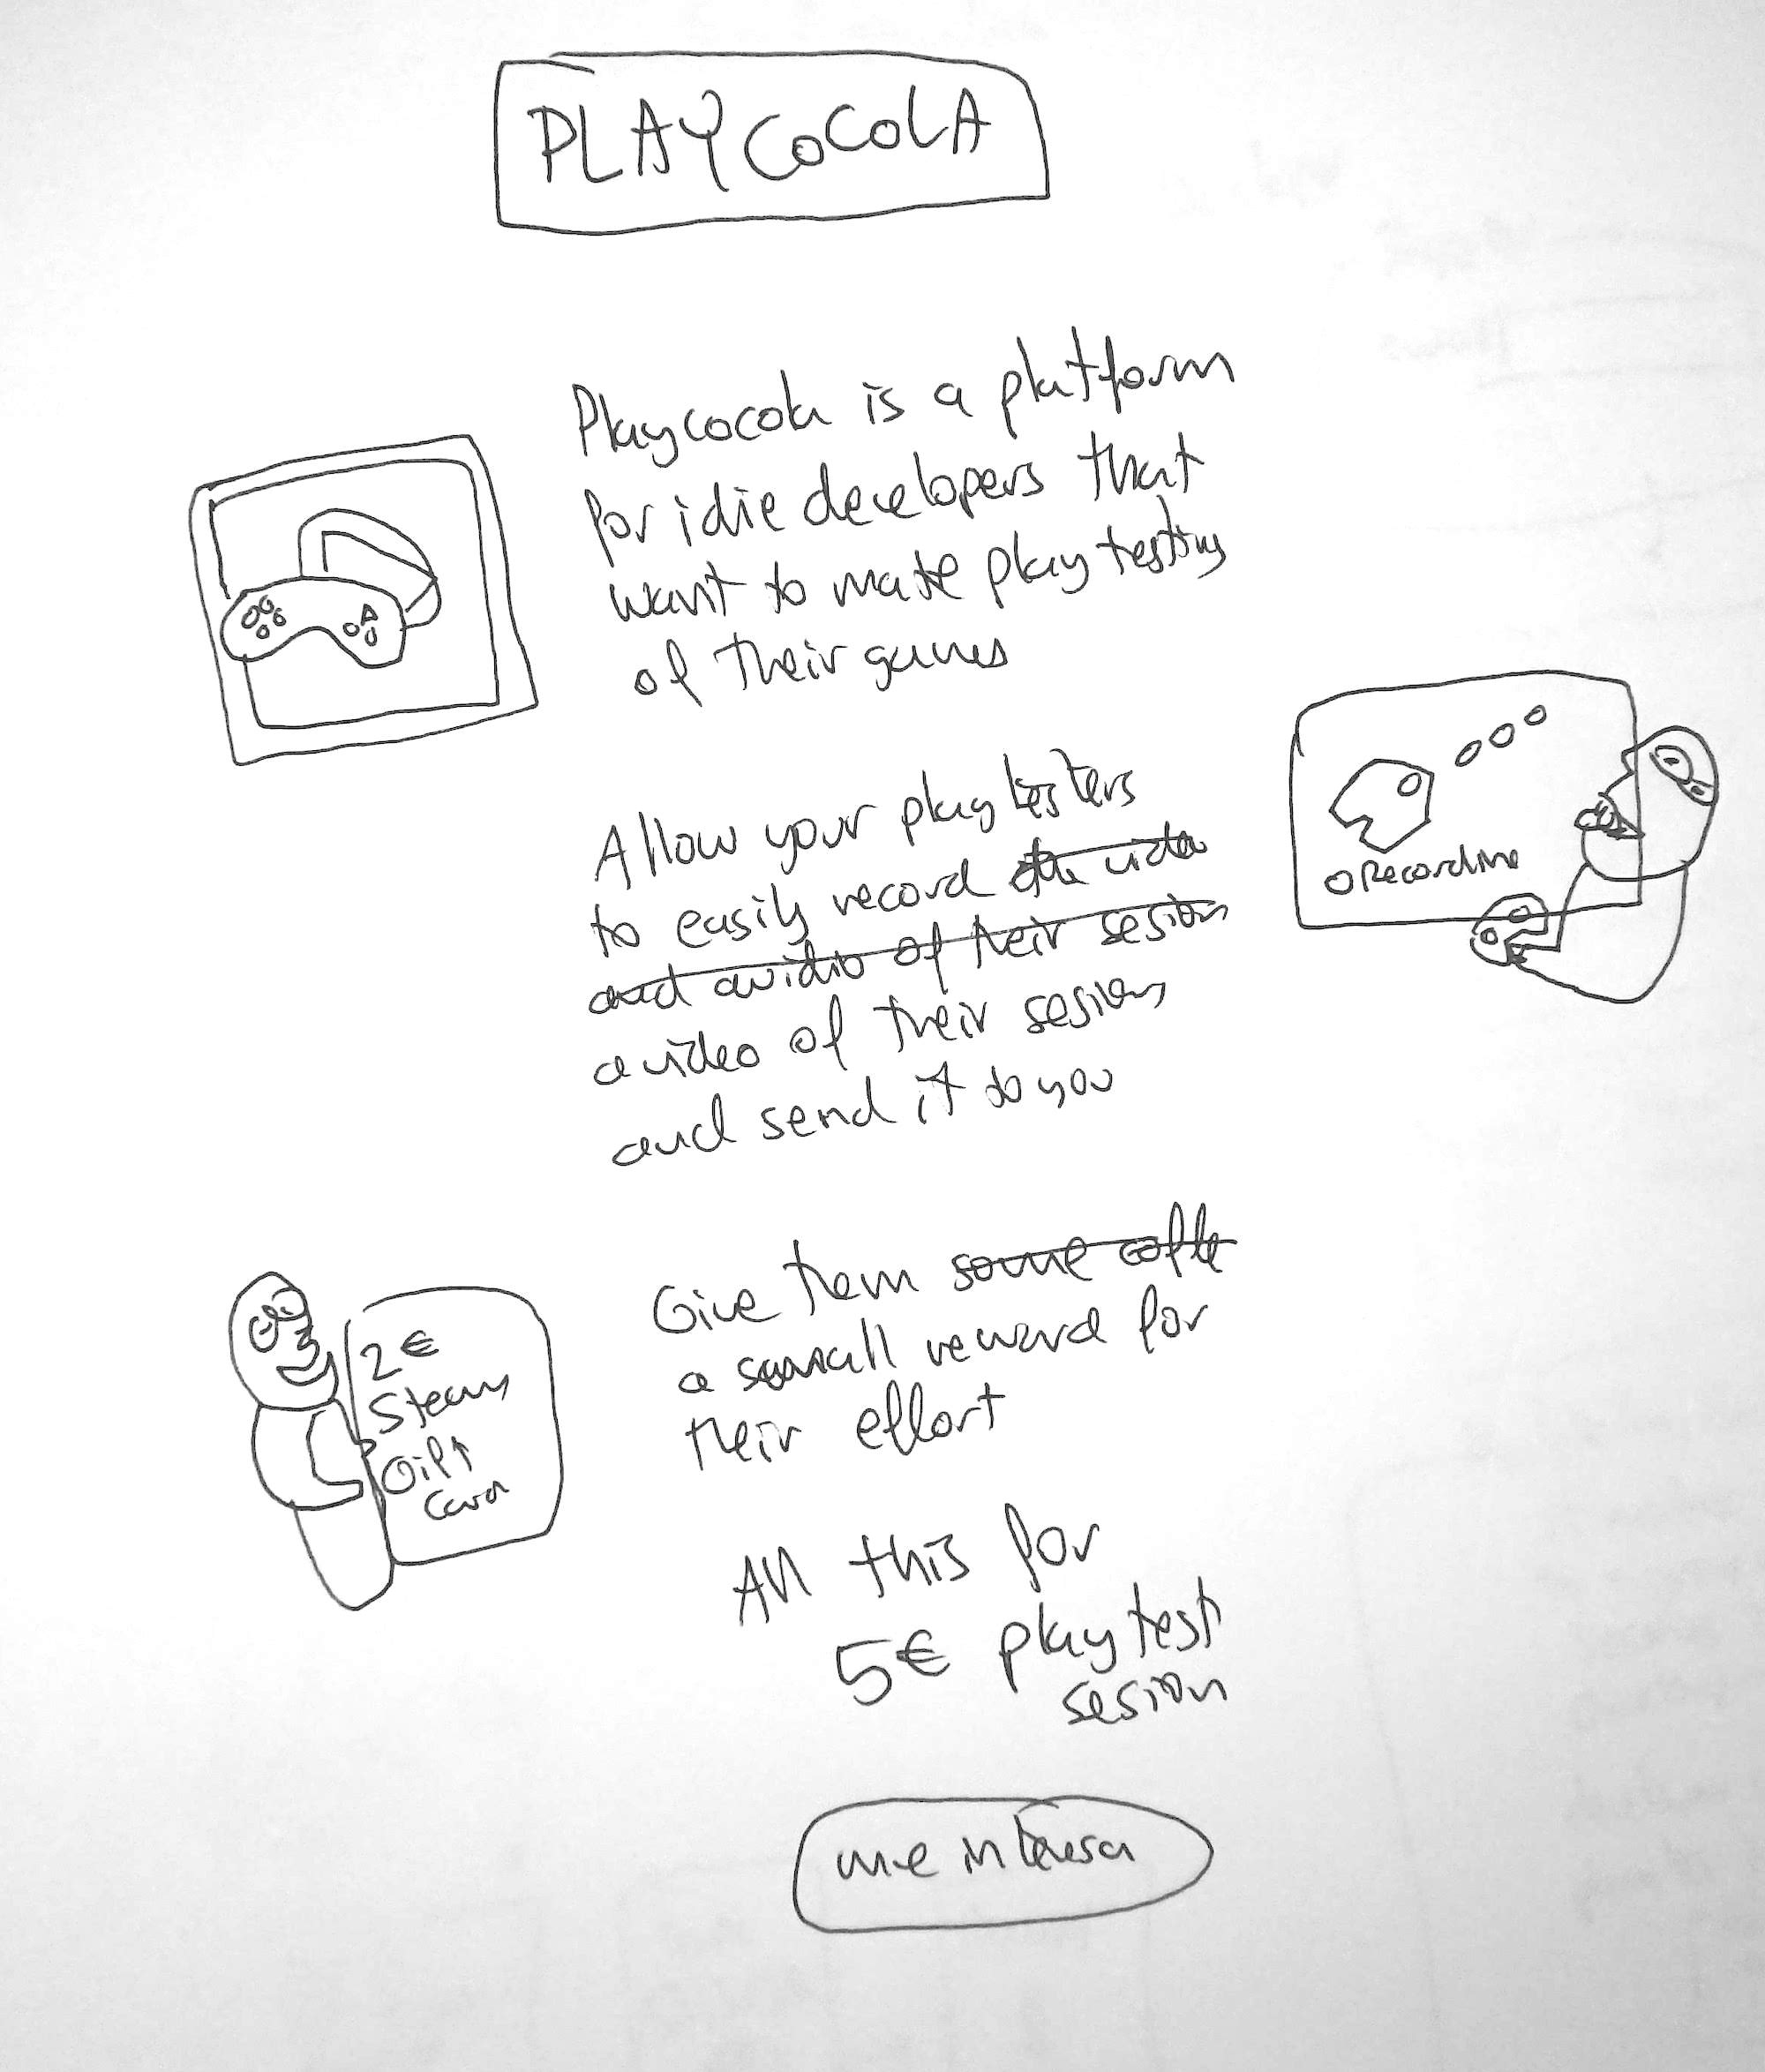 PLAYCOCOLA
Playcocola is a platform
for idie developers that
want to make play testing
of their games
Allow your play testers
to easily record the video
and avidio of their sesion
a video of their sesion
and send it to you
O Recording
Give them some coffe
a small reward for
their effort
2€
Steam
Gift
Card
All this for
5€ play test
sesion
me interesa